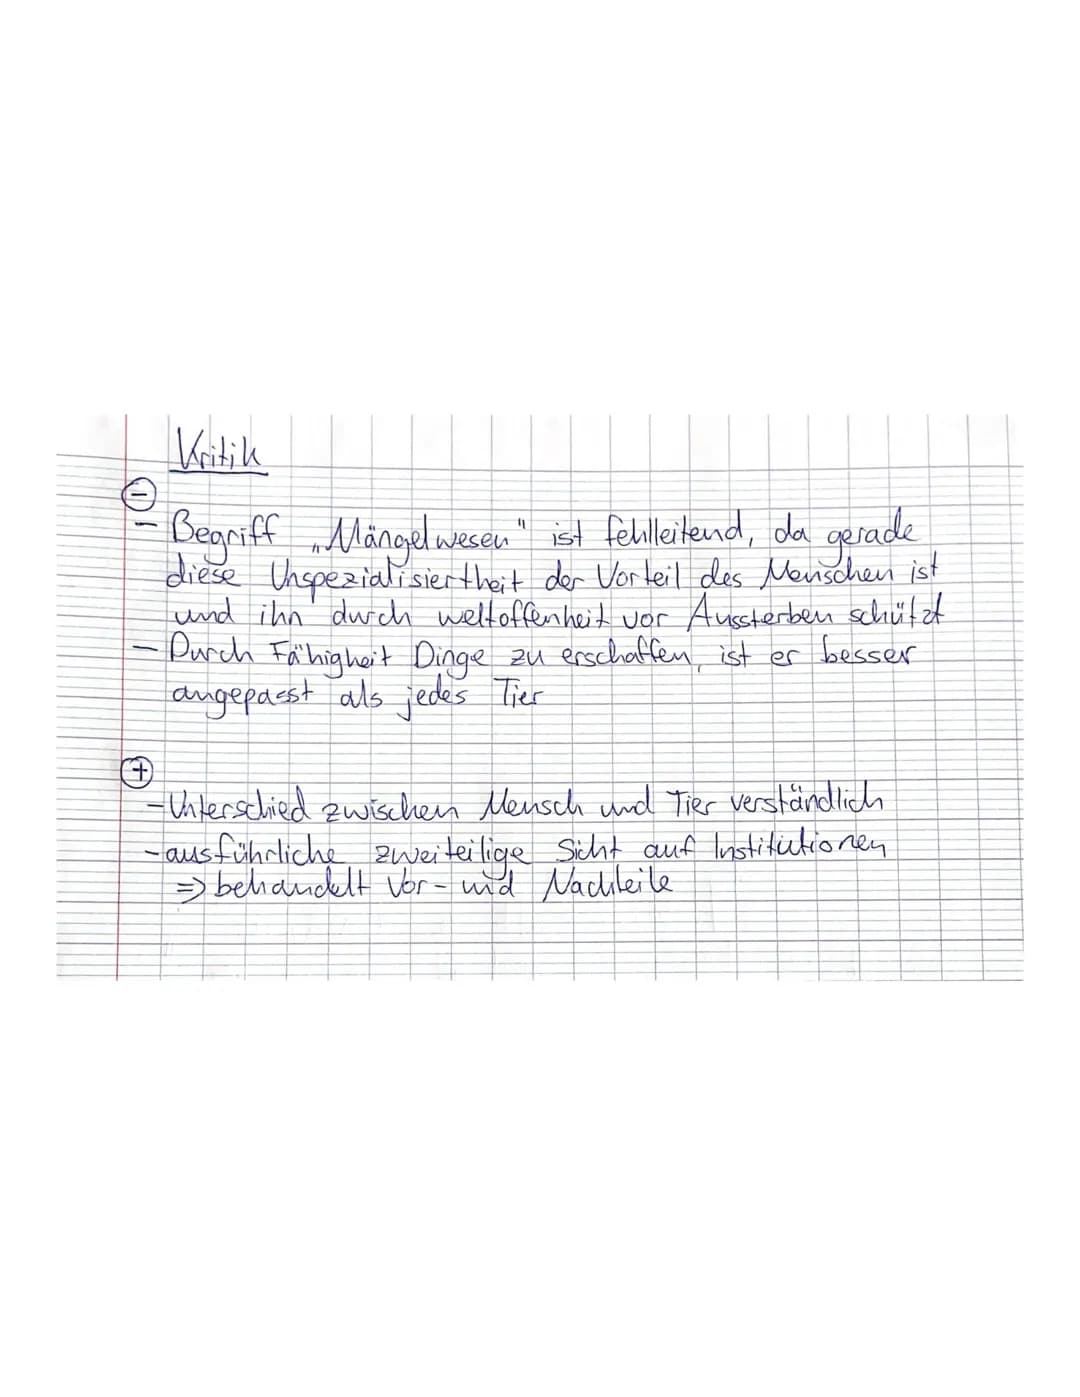 Kritik
⊖
- Begriff „Mängelwesen" ist fehlleitend, da gerade
diese Unspezialisiertheit der Vorteil des Menschen ist
und ihn durch weltoffenheit vor Aussterben schützt
- Durch Fähigkeit Dinge zu erschaffen, ist er besser
angepasst als jedes Tier
⊕
- Unterschied zwischen Mensch und Tier verständlich
- ausführliche zweiteilige Sicht auf Institutionen
=> behandelt Vor- und Nachteile